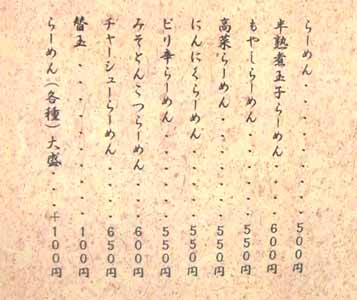 らーめん・・・・・・・・500円
半熟煮玉子らーめん・・・600円
もやしらーめん・・・・・550円
高菜らーめん・・・・・・550円
にんにくらーめん・・・・550円
ピリ辛らーめん・・・・・550円
みそとんこつらーめん・・600円
チャーシューらーめん・・650円
替玉・・・・・・・・・・100円
らーめん(各種)大盛・・・+100円